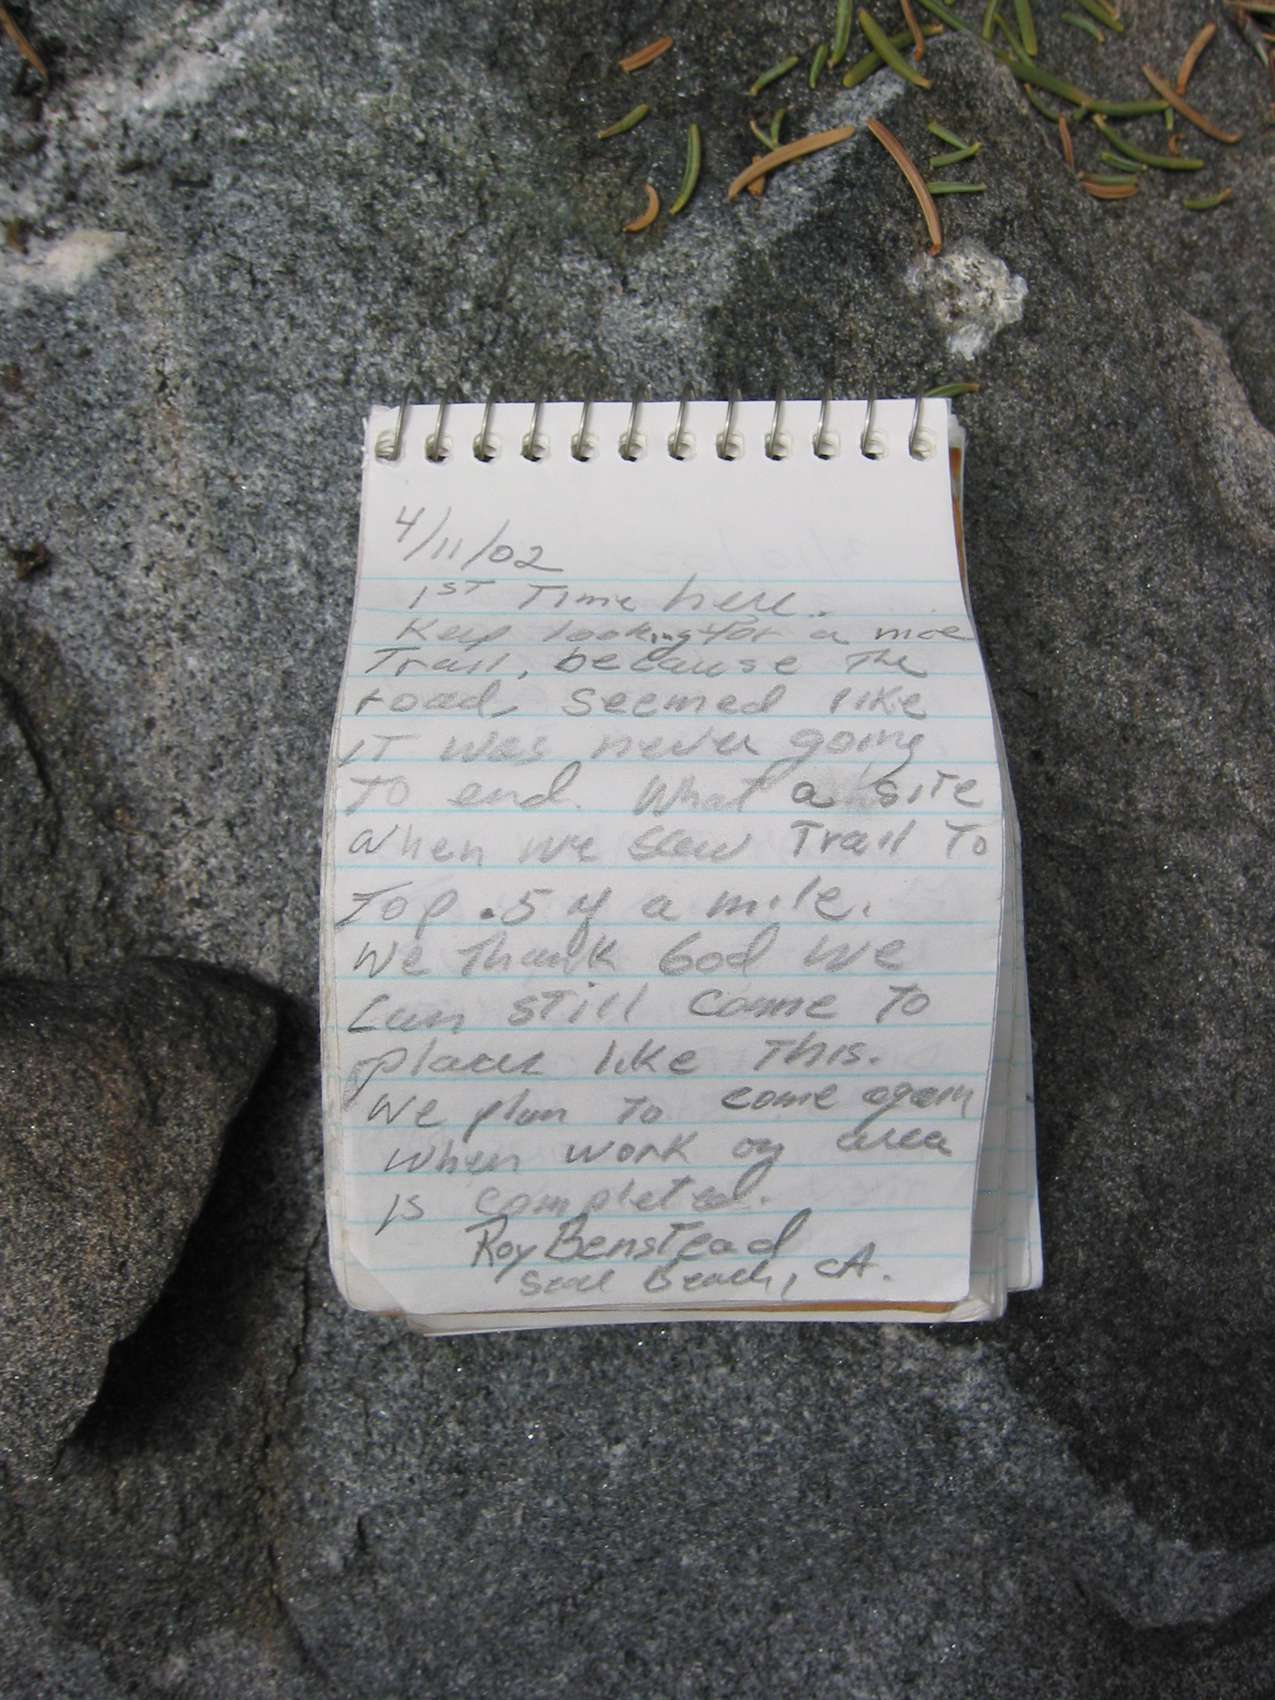 4/11/02
1ST Time here.
Keep looking for a nice
Trail, because the
road, seemed like
IT was never going
To end. What a site
when we saw Trail To
Top .5 of a mile.
We Thank God we
Can still come To
places like This.
We plan To come again
When work on area
is completed.
Roy Benstead
Seal Beach, CA.